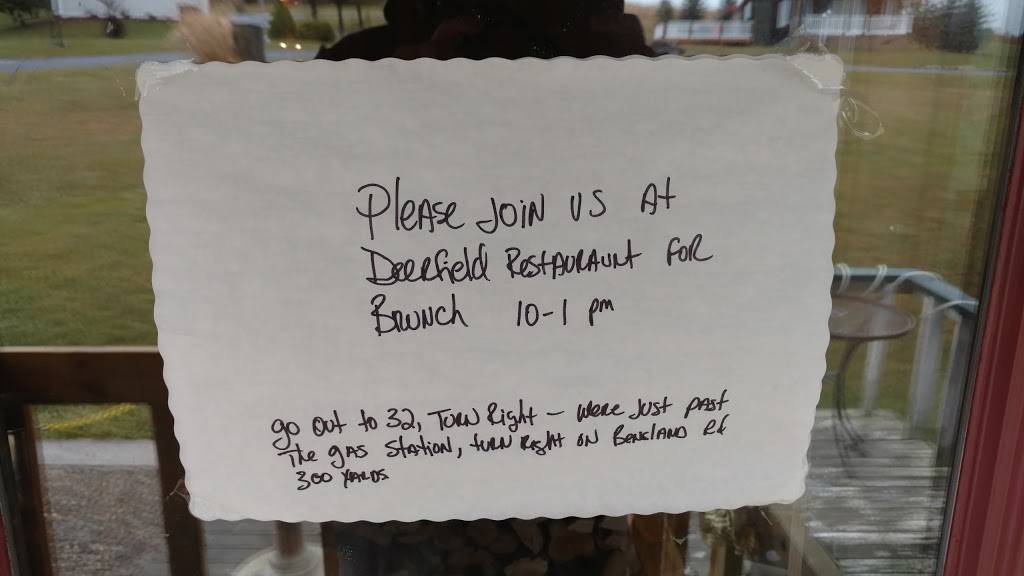 Please Join us At
Deerfield Restauraunt For
Brunch 10-1 pm
go out to 32, Turn Right - were Just past
The gas station, turn Right on Bensland Rd
300 yards